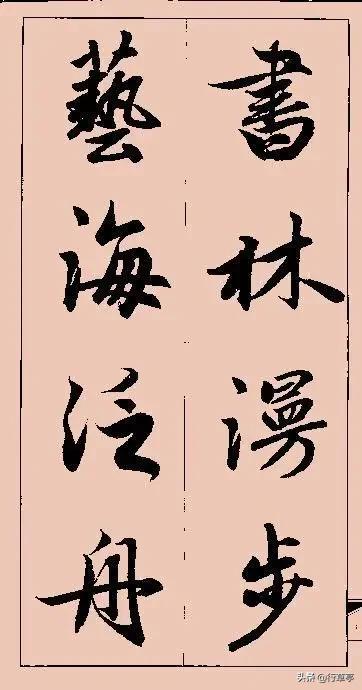 書林漫步
藝海泛舟
头条@行草亭